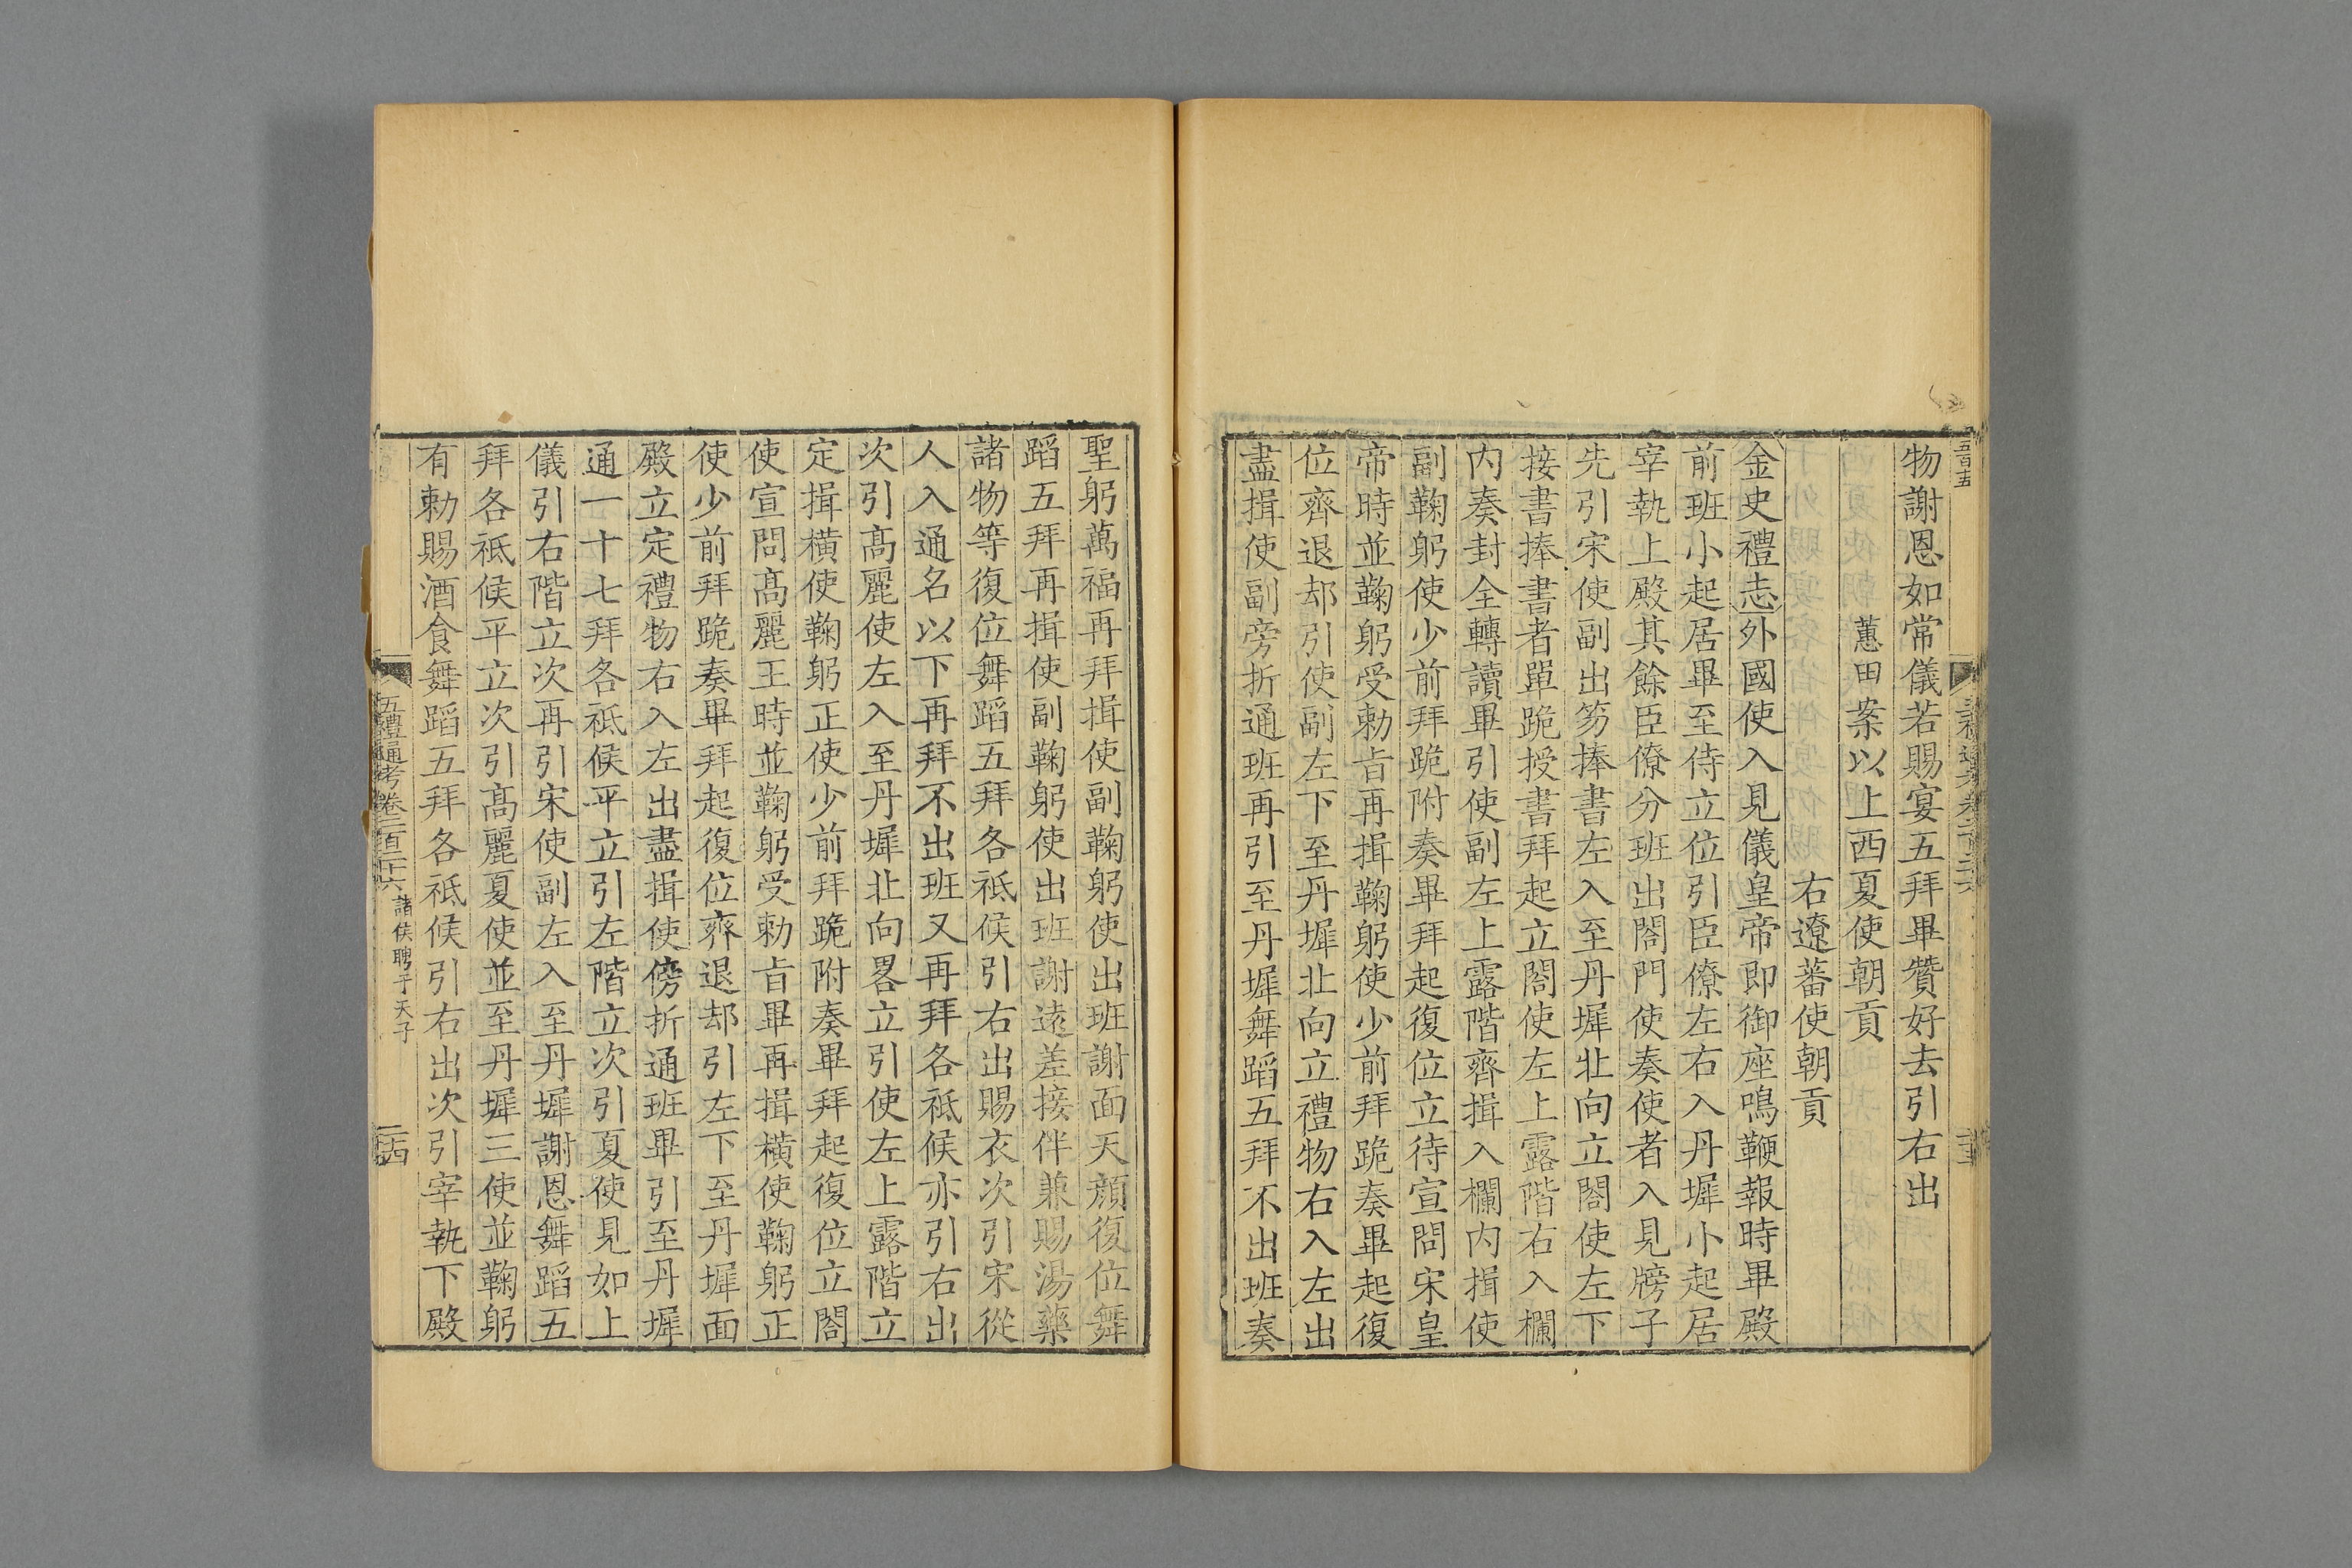 五百十五
物謝恩如常儀若賜宴五拜畢贊好去引右出
蕙田案以上西夏使朝貢
右遼蕃使朝貢
金史禮志外國使入見儀皇帝即御座鳴鞭報時畢殿
前班小起居畢至侍立位引臣僚左右入丹墀小起居
宰執上殿其餘臣僚分班出閤門使奏使者入見牓子
先引宋使副出笏捧書左入至丹墀北向立閤使左下
接書捧書者單跪授書拜起立閤使左上露階右入欄
内奏封全轉讀畢引使副左上露階齊揖入欄内揖使
副鞠躬使少前拜跪附奏畢拜起復位立待宣問宋皇
帝時並鞠躬受勅旨再揖鞠躬使少前拜跪奏畢起復
位齊退却引使副左下至丹墀北向立禮物右入左出
盡揖使副旁折通班再引至丹墀舞蹈五拜不出班奏
聖躬萬福再拜揖使副鞠躬使出班謝面天顔復位舞
蹈五拜再揖使副鞠躬使出班謝遠差接伴兼賜湯藥
諸物等復位舞蹈五拜各祗候引右出賜衣次引宋從
人入通名以下再拜不出班又再拜各祗候亦引右出
次引髙麗使左入至丹墀北向畧立引使左上露階立
定揖横使鞠躬正使少前拜跪附奏畢拜起復位立閤
使宣問髙麗王時並鞠躬受勅旨畢再揖横使鞠躬正
使少前拜跪奏畢拜起復位齊退却引左下至丹墀面
殿立定禮物右入左出盡揖使傍折通班畢引至丹墀
通一十七拜各祗候平立引左階立次引夏使見如上
儀引右階立次再引宋使副左入至丹墀謝恩舞蹈五
拜各祗候平立次引髙麗夏使並至丹墀三使並鞠躬
有勅賜酒食舞蹈五拜各祗候引右出次引宰執下殿
五禮通考卷二百二十六 諸侯聘于天子
二十四